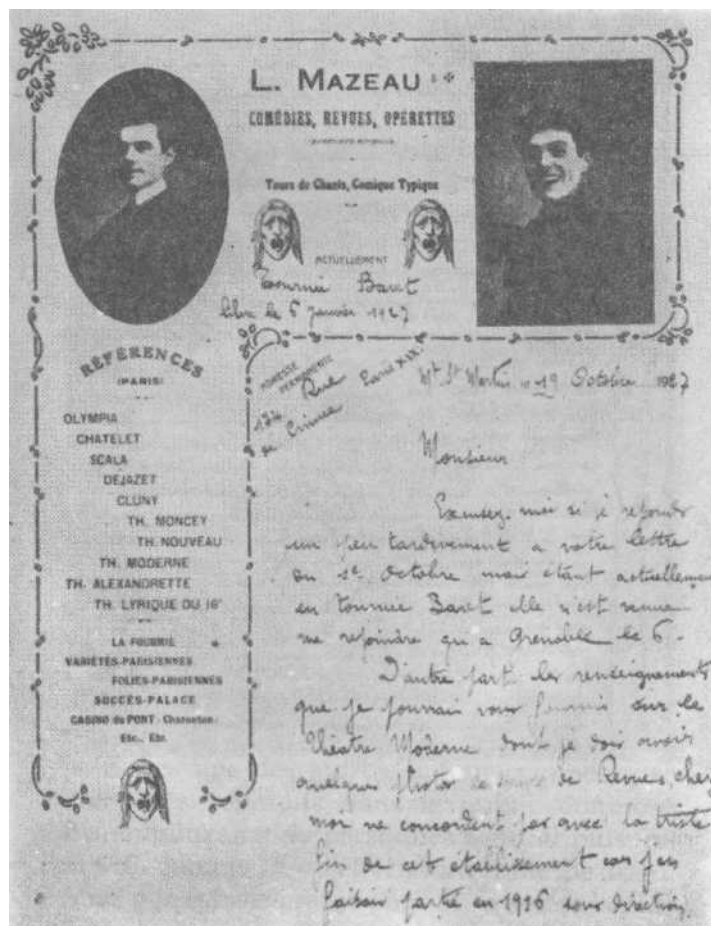 L. MAZEAU
COMÉDIES, REVUES, OPÉRETTES
Tours de Chants, Comique Typique
ACTUELLEMENT
Tournée Baret
libre le 6 janvier 1927
RÉFÉRENCES
(PARIS)
OLYMPIA
CHATELET
SCALA
DEJAZET
CLUNY
TH. MONCEY
TH. NOUVEAU
TH. MODERNE
TH. ALEXANDRETTE
TH. LYRIQUE DU 16e
LA FOURMIE
VARIÉTÉS-PARISIENNES
FOLIES-PARISIENNES
SUCCÈS-PALACE
CASINO du PONT - Charenton
Etc., Etc.
ADRESSE
PERMANENTE
174 Rue
de Crimée
Paris XIX.
Mt St Martin le 19 Octobre 1927
Monsieur
Excusez-moi si je réponds
un peu tardivement a votre lettre
du 1er Octobre mais étant actuellement
en tournée Baret elle n'est venue
me rejoindre qu'a Grenoble le 6.
D'autre part les renseignements
que je pourrai vous fournir sur le
Théatre Moderne dont je dois avoir
quelques photos de Revues chez
moi ne concordent pas avec la triste
fin de cet établissement car j'en
faisais partie en 1916 sous direction